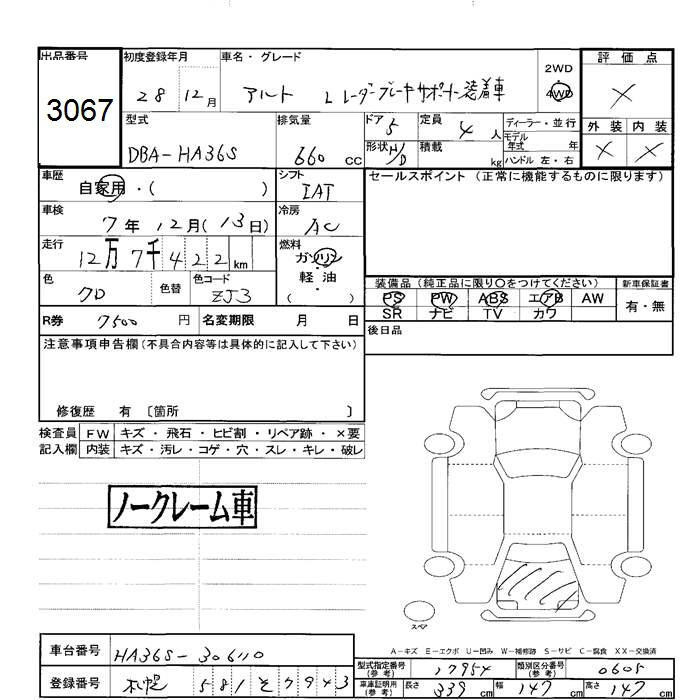 出品番号
3067
初度登録年月
28 12月
車名・グレード
アルト L レーダーブレーキサポート装着車
2WD
4WD
評価点
×
外装 内装
× ×
型式
DBA-HA36S
排気量
660 CC
ドア 5
形状 H/D
定員 4 人
積載 kg
ディーラー・並行
モデル年式 年
ハンドル 左・右
車歴
自家用・( )
シフト
IAT
セールスポイント (正常に機能するものに限ります)
車検
7年12月(13日)
冷房
AC
走行
12万7千422km
燃料
ガソリン・軽油
( )
色
クロ
色替
色コード
ZJ3
装備品 (純正品に限り○をつけてください)
PS PW ABS エアB AW
SR ナビ TV カワ
新車保証書
有・無
R券 7500 円
名変期限 月 日
後日品
注意事項申告欄(不具合内容等は具体的に記入して下さい)
修復歴 有 〔箇所 〕
検査員記入欄
FW キズ・飛石・ヒビ割・リペア跡・×要
内装 キズ・汚レ・コゲ・穴・スレ・キレ・破レ
ノークレーム車
スペア
A-キズ E-エクボ U-凹み W-補修跡 S-サビ C-腐食 XX-交換済
車台番号 HA36S-306110
登録番号 札幌 581 そ 7943
型式指定番号(参考) 17954
類別区分番号(参考) 0605
車庫証明用(参考) 長さ 339 cm 幅 147 cm 高さ 147 cm